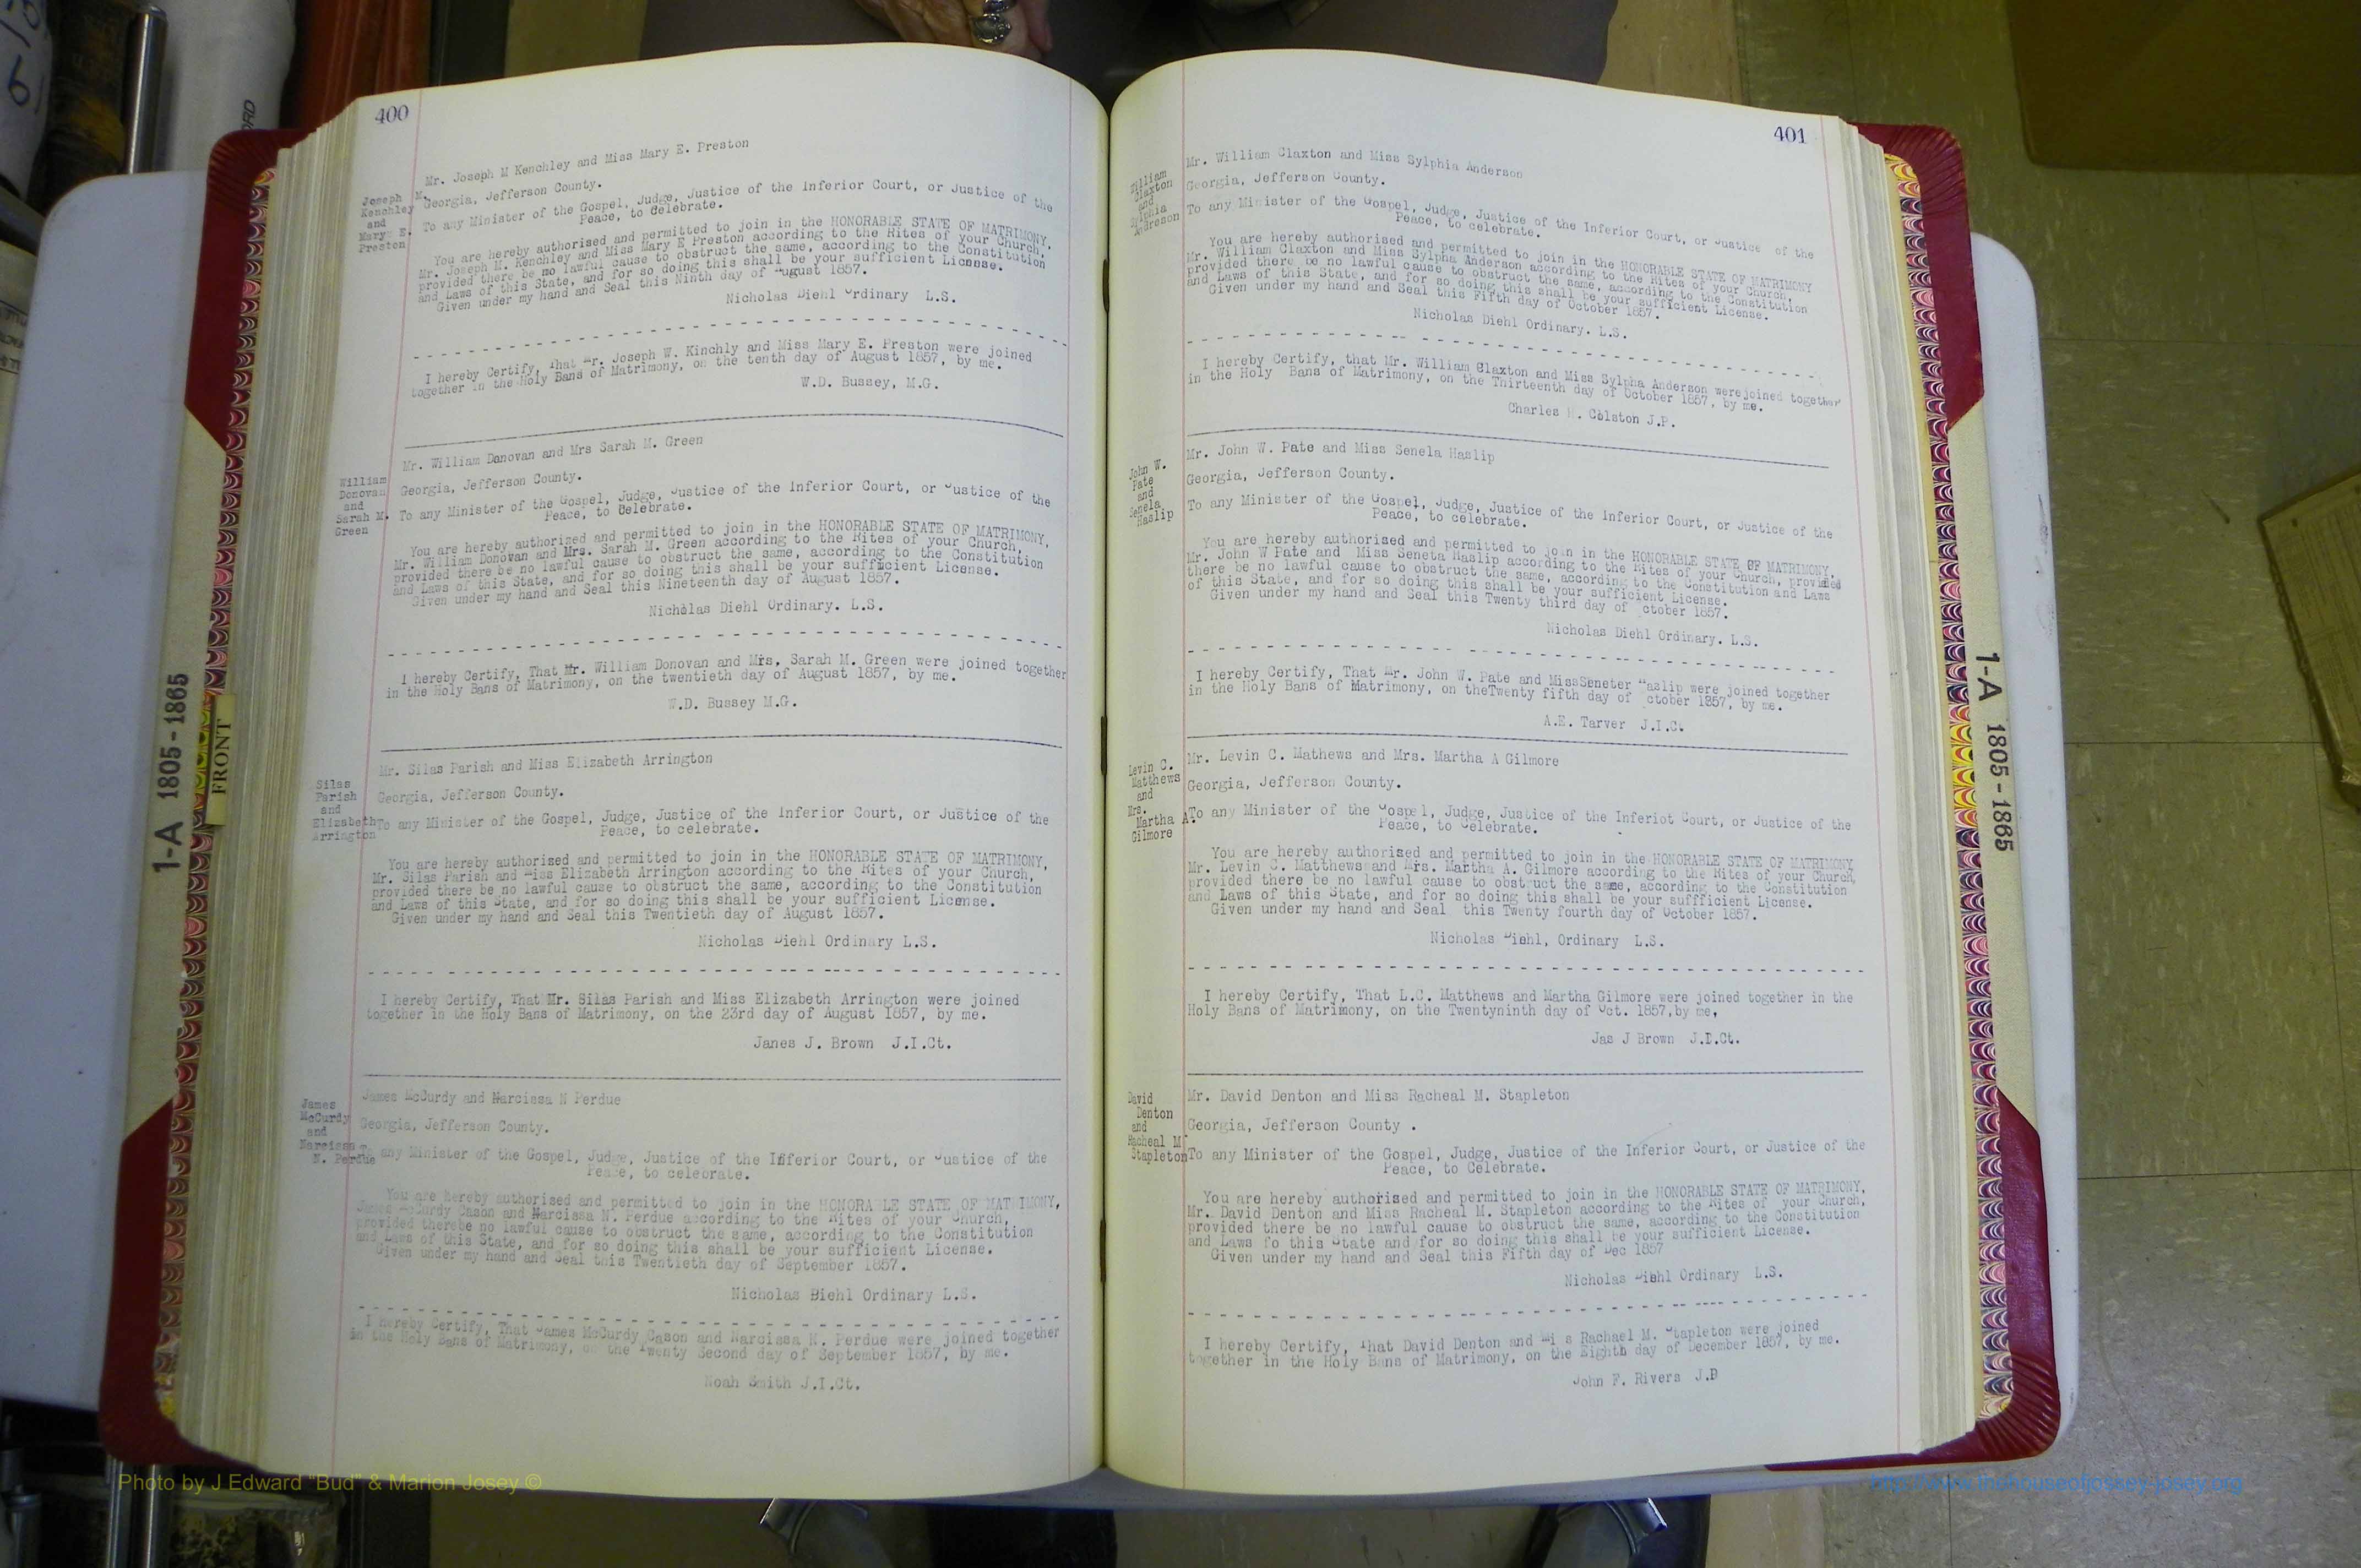 400
Mr. Joseph M Kenchley and Miss Mary E. Preston
Joseph M.
Kenchley
and
Mary E.
Preston
Georgia, Jefferson County.
To any Minister of the Gospel, Judge, Justice of the Inferior Court, or Justice of the
Peace, to Celebrate.
You are hereby authorised and permitted to join in the HONORABLE STATE OF MATRIMONY,
Mr. Joseph M. Kenchley and Miss Mary E Preston according to the Rites of your Church,
provided there be no lawful cause to obstruct the same, according to the Constitution
and Laws of this State, and for so doing this shall be your sufficient License.
Given under my hand and Seal this Ninth day of August 1857.
Nicholas Diehl Ordinary L.S.
I hereby Certify, That Mr. Joseph W. Kinchly and Miss Mary E. Preston were joined
together in the Holy Bans of Matrimony, on the tenth day of August 1857, by me.
W.D. Bussey, M.G.
Mr. William Donovan and Mrs Sarah M. Green
William
Donovan
and
Sarah M.
Green
Georgia, Jefferson County.
To any Minister of the Gospel, Judge, Justice of the Inferior Court, or Justice of the
Peace, to Celebrate.
You are hereby authorised and permitted to join in the HONORABLE STATE OF MATRIMONY,
Mr. William Donovan and Mrs. Sarah M. Green according to the Rites of your Church,
provided there be no lawful cause to obstruct the same, according to the Constitution
and Laws of this State, and for so doing this shall be your sufficient License.
Given under my hand and Seal this Nineteenth day of August 1857.
Nicholas Diehl Ordinary. L.S.
I hereby Certify, That Mr. William Donovan and Mrs, Sarah M. Green were joined together
in the Holy Bans of Matrimony, on the twentieth day of August 1857, by me.
W.D. Bussey M.G.
Mr. Silas Parish and Miss Elizabeth Arrington
Silas
Parish
and
Elizabeth
Arrington
Georgia, Jefferson County.
To any Minister of the Gospel, Judge, Justice of the Inferior Court, or Justice of the
Peace, to celebrate.
You are hereby authorised and permitted to join in the HONORABLE STATE OF MATRIMONY,
Mr. Silas Parish and Miss Elizabeth Arrington according to the Rites of your Church,
provided there be no lawful cause to obstruct the same, according to the Constitution
and Laws of this State, and for so doing this shall be your sufficient License.
Given under my hand and Seal this Twentieth day of August 1857.
Nicholas Diehl Ordinary L.S.
I hereby Certify, That Mr. Silas Parish and Miss Elizabeth Arrington were joined
together in the Holy Bans of Matrimony, on the 23rd day of August 1857, by me.
Janes J. Brown J.I.Ct.
James McCurdy and Narcissa N Perdue
James
McCurdy
and
Narcissa
N. Perdue
Georgia, Jefferson County.
To any Minister of the Gospel, Judge, Justice of the Inferior Court, or Justice of the
Peace, to celebrate.
You are hereby authorised and permitted to join in the HONORABLE STATE OF MATRIMONY,
James McCurdy Cason and Narcissa N. Perdue according to the Rites of your Church,
provided therebe no lawful cause to obstruct the same, according to the Constitution
and Laws of this State, and for so doing this shall be your sufficient License.
Given under my hand and Seal this Twentieth day of September 1857.
Nicholas Diehl Ordinary L.S.
I hereby Certify, That James McCurdy Cason and Narcissa N. Perdue were joined together
in the Holy Bans of Matrimony, on the Twenty Second day of September 1857, by me.
Noah Smith J.I.Ct.
401
Mr. William Claxton and Miss Sylphia Anderson
William
Claxton
and
Sylphia
Anderson
Georgia, Jefferson County.
To any Minister of the Gospel, Judge, Justice of the Inferior Court, or Justice of the
Peace, to celebrate.
You are hereby authorised and permitted to join in the HONORABLE STATE OF MATRIMONY
Mr. William Claxton and Miss Sylpha Anderson according to the Rites of your Church,
provided there be no lawful cause to obstruct the same, according to the Constitution
and Laws of this State, and for so doing this shall be your sufficient License.
Given under my hand and Seal this Fifth day of October 1857.
Nicholas Diehl Ordinary. L.S.
I hereby Certify, that Mr. William Claxton and Miss Sylpha Anderson werejoined together
in the Holy Bans of Matrimony, on the Thirteenth day of October 1857, by me.
Charles H. Colston J.P.
Mr. John W. Pate and Miss Senela Haslip
John W.
Pate
and
Senela
Haslip
Georgia, Jefferson County.
To any Minister of the Gospel, Judge, Justice of the Inferior Court, or Justice of the
Peace, to celebrate.
You are hereby authorized and permitted to join in the HONORABLE STATE OF MATRIMONY,
Mr. John W Pate and Miss Seneta Haslip according to the Rites of your Church, provided
there be no lawful cause to obstruct the same, according to the Constitution and Laws
of this State, and for so doing this shall be your sufficient License.
Given under my hand and Seal this Twenty third day of October 1857.
Nicholas Diehl Ordinary. L.S.
I hereby Certify, That Mr. John W. Pate and MissSeneter Hazlip were joined together
in the Holy Bans of Matrimony, on theTwenty fifth day of October 1857, by me.
A.E. Tarver J.I.C.
Mr. Levin C. Mathews and Mrs. Martha A Gilmore
Levin C.
Matthews
and
Mrs.
Martha A.
Gilmore
Georgia, Jefferson County.
To any Minister of the Gospel, Judge, Justice of the Inferiot Court, or Justice of the
Peace, to Celebrate.
You are hereby authorised and permitted to join in the HONORABLE STATE OF MATRIMONY
Mr. Levin C. Matthews and Mrs. Martha A. Gilmore according to the Rites of your Church,
provided there be no lawful cause to obstruct the same, according to the Constitution
and Laws of this State, and for so doing this shall be your suffficient License.
Given under my hand and Seal this Twenty fourth day of October 1857.
Nicholas Diehl, Ordinary L.S.
I hereby Certify, That L.C. Matthews and Martha Gilmore were joined together in the
Holy Bans of Matrimony, on the Twentyninth day of Oct. 1857,by me,
Jas J Brown J.I.Ct.
Mr. David Denton and Miss Racheal M. Stapleton
David
Denton
and
Racheal M
Stapleton
Georgia, Jefferson County .
To any Minister of the Gospel, Judge, Justice of the Inferior Court, or Justice of the
Peace, to Celebrate.
You are hereby authorised and permitted to join in the HONORABLE STATE OF MATRIMONY,
Mr. David Denton and Miss Racheal M. Stapleton according to the Rites of your Church,
provided there be no lawful cause to obstruct the same, according to the Constitution
and Laws fo this State and for so doing this shall be your sufficient License.
Given under my hand and Seal this Fifth day of Dec 1857
Nicholas Diehl Ordinary L.S.
I hereby Certify, That David Denton and Mi s Rachael M. Stapleton were joined
together in the Holy Bans of Matrimony, on the Eighth day of December 1857, by me.
John F. Rivers J.P
1-A 1805-1865
FRONT
1-A 1805-1865
Photo by J Edward "Bud" & Marion Josey ©
http://www.thehouseofjossey-josey.org